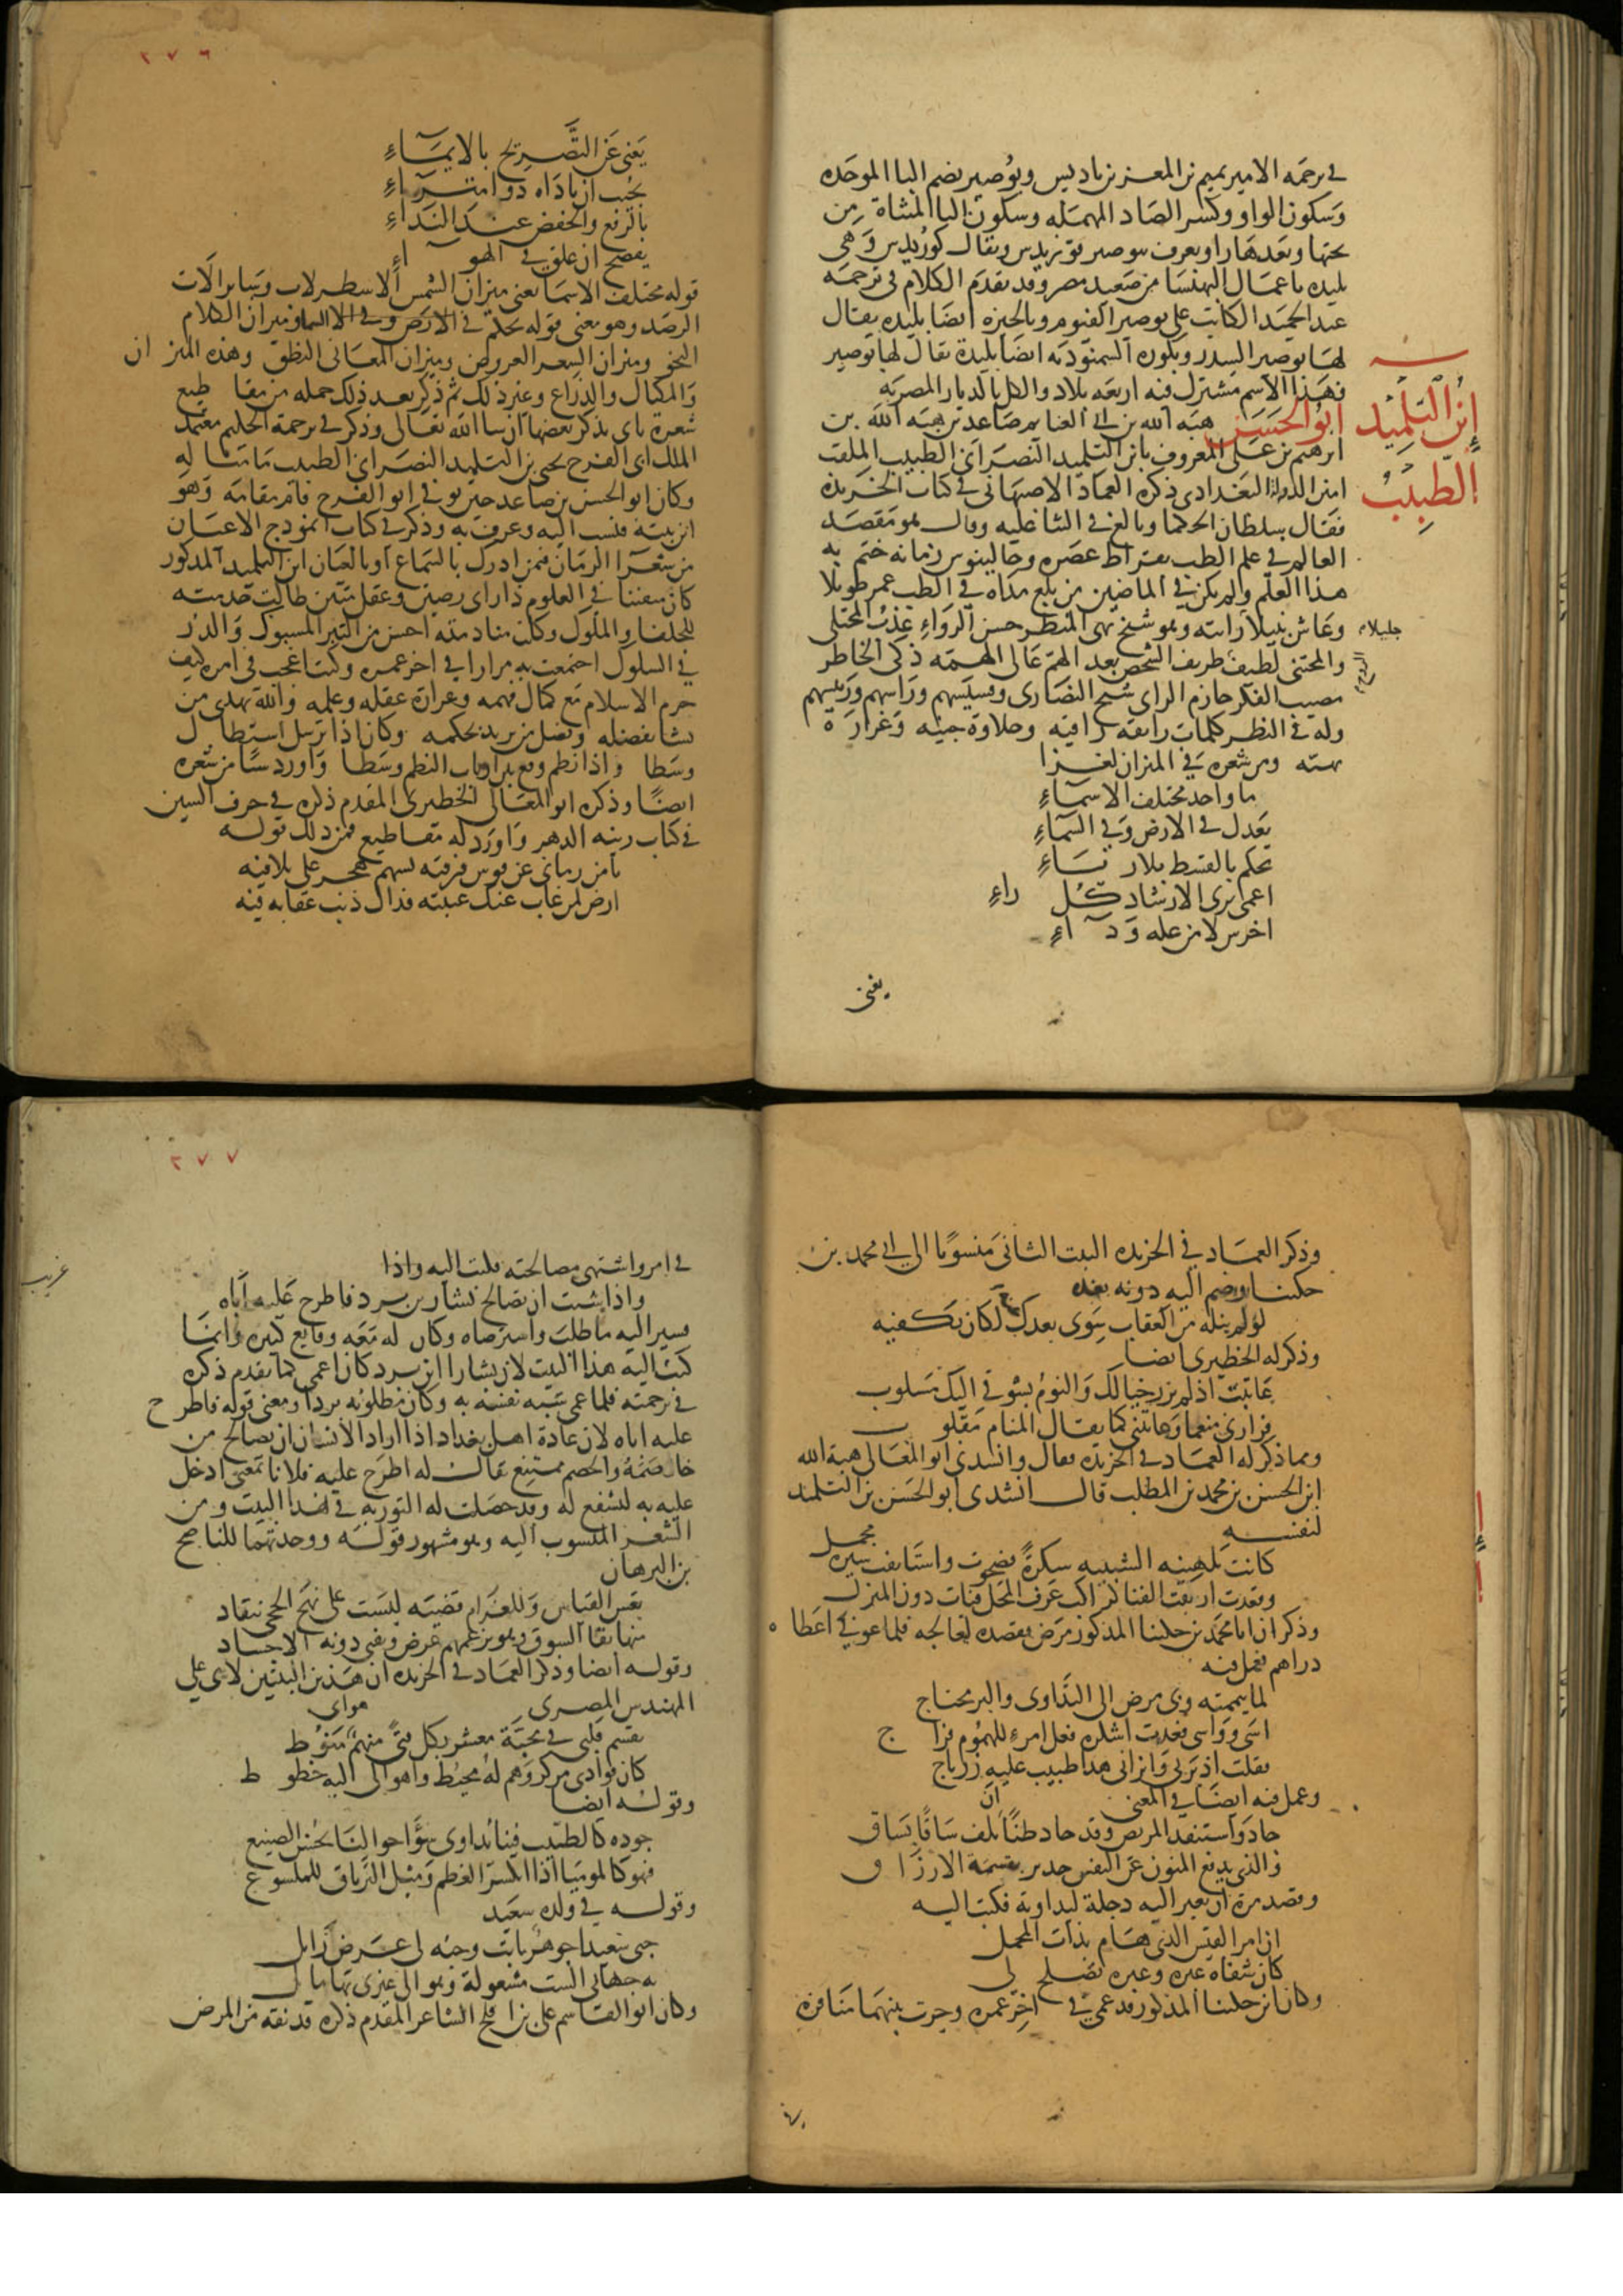 في ترجمه الامير تميم بن المعز بن باديس وبُوصير بضم البا الموحده
وَسكون الواو وكسر الصَاد المهمَله وسكون اليا المثناة من
تحتها وبَعدهَا را ويعرف ببوصير قوريدس ويقال كورُيدس وَهى
بليده باعمَال البهنسَا من صَعيد مصر وقد تقدم الكلام فى ترجمَه
عبد الحميَد الكاتب على بوصير الفيوم وبالجيزه ايضا بليده يقال
لهَا بوصير السدر وبكوره السمنودَيه ايضَا بليدة يقال لهَا بوصير
فهَذا الاسم مشترك فيه اربعَه بلاد والكل بالديار المصريه
إبن التلميذ
الطبيبُ
ابُو الحسَن هبَه الله بن ابي الغنايم صَاعد بن هبَه الله بن
ابرهيم بن عَلى المعروف بابن التلميذ النصرَانى الطبيب الملقب
امين الدولة البَغدادى ذكره العمَاد الاصبهانى فى كتاب الخريده
فقَال سلطان الحكما وبالغ في الثنا عليه وقال هو مَقصَد
العالم في علم الطب بقراط عصَره وجالينوس زمَانه ختم به
هذا العلم ولم يكن في الماضين من بلغ مدَاه في الطب عمر طويلا
وعَاش نبيلا رايته وهو شيخ بهى المنظر حسن الرواءِ عذبُ المجتلى
جليلا
والمجتنى لطيف الروح ظريف الشخص بعيد الهم عَالى الهمّه ذكى الخاطر
مصيب الفكر حازم الراى شيخ النصَارى وقسيسهم ورَاسهم ورَييسهم
وله فى النظم كلمات رايقه رافيه وحلاوة جنيه وَغزارَ ه
بهيّه ومن شعره في الميزان لغزا
ما واحد مختلف الاسمآءِ
يَعدل في الارض وَفي السّمآءِ
يحكم بالقسط بلا ريـَـاءِ
اعمى يرى الارشاد كُل راءِ
اخرس لا من عله وَ دَ اءِ
يغنى
٢٧٦
يَغنى عَن التَّصريح بالايمَـاءِ
يُجيب ان ناداه ذو امترَآءِ
بالرفع والخفض عند النَداءِ
يفصح ان علق في الهو اءِ
قوله مختلف الاسمَا يعنى ميزان الشمس الاسطرلاب وسَاير آلات
الرصَد وهو معنى قوله يحكم في الارض وفي السما وميزان الكلام
النحو وميزان الشعر العروض وميزان المعَانى المنطق وهذه الميز ان
وَالمكيال والذراع وغير ذلك ثم ذكر بعد ذلك جمله من مقا طيع
شعره ياتى بذكر بعضهَا ان شا الله تعَالى وذكر في ترجمة الحكيم معتمد
الملك ابى الفرج يحيى بن التلميذ النصرَانى الطبيب مَا مثا له
وكان ابو الحسن بن صَاعد حين توفى ابو الفرج قام مقامَه وَهو
ابن بنته فنسب اليه وعرف به وذكر في كتاب انموذج الاعيَان
من شعَرا الزمَان فمن ادرك بالسَماع او بالعيَان ابن التلميذ المذكور
كان متفننا في العلوم ذا راى رصين وعَقل متين طالت خدمته
للخلفا والملوك وكانت منادمته احسن من التبر المسبوك وَالدر
في السلوك اجتمعت به مرارا في اخر عمره وكنت اعجب فى امره كيف
حرم الاسلام مَع كمال فهمه وغزارة عقله وعلمه وَالله يهدى من
يشا بفضله ويضل من يريد بحكمه وكان اذا ترسل استطا ل
وسَطا واذا نظم وقع بين ارباب النظم وسَطا وَاورد شيئًا من شعره
ايضًا وذكره ابو المعَالى الحظيرى المقدم ذكره فى حرف السين
في كتاب زينه الدهر وَاورَد له مقَاطيع فمن ذلك قولــه
يا من رمانى عن قوس فرقته بسهم هجر على تلافيه
ارض لمن غاب عنك غيبته فذاك ذنب عقابه فيه
وذكر العمَاد في الخريده البيت الثانى مَنسوبًا الى ابي محمد بن
حكينا وضم اليه دونه بعده
لو لم ينله من العقاب سِوى بعدك لكان يكفيه
وذكر له الحظيرى ايضا
عَاتبت اذ لم يزر خيالك وَالنومُ بشوقي اليك مَسلوب
فزارنى منعما وعَاتبنى كما يقـال المنام مَقلو ب
ومما ذكر له العمَاد في الخريده فقال وانشدنى ابو المعَالى هبة الله
ابن الحسن بن محمد بن المطلب قال انشدنى ابو الحسَن بن التلميذ
لنفسه
كانت بلهنيه الشبيبه سكرةً فصَحوت واستانفت سيره مجمل
وقعدت ارتقب الفنا كراكب عَرف المحل فبات دون المنزل
وذكر ان ابا محمَد بن حكينا المذكور مَرض فقصده ليعالجه فلما عوفي اعَطا ه
دراهم فعمل فيه
لما تيممته وبى مرض الى التداوى والبر محتاج
اسَى وَوَاسى فعُدت اشكره فعل امرءٍ للهمُوم فرا ج
فقلت اذ برنى وَابرانى هذا طبيب عليه زرباج
وعمل فيه ايضَا في المعنى
جاد وَاستنقذ المريض وقد كاد ضنًا ان يلف سَاقًا بسَاق
والذى يدفع المنون عن النفس جدير بقسمة الارزَ ا ق
وقصد مرة ان يعبر اليه دجلة ليداويه فكتب اليـه
ان امرا القيس الذى هَـام بذات المحمل
كان شفاه عبره وعبره تصلح لى
وكان ابن حكينا المذكور قد عمى في اخِر عمره وجرت بينهمَا مَنافره
في
٢٧٧
في امر واشتهى مصالحته فكتب اليه واذا
واذا شئت ان تصَالح بشار بن برد فاطرح عَليه اباه
غريب
فسير اليه مَا طلبَ واسترضاه وكان له معَه وقايع كثيره وَانمَـا
كتب اليه هذا البيت لان بشارا ابن برد كان اعمى كما تقدم ذكره
في ترجمته فلما عمى شبَه نفسه به وكان مطلوبه بردا ومعنى قوله فاطر ح
عليه اباه لان عَادة اهل بغداد اذا اراد الانسان ان يصَالح من
خاصَمهُ والخصم ممتنع يقال له اطرَح عليه فلانا بمعنى ادخل
عليه به ليشفع له وقد حصَلت له التوريه في هذا البيت ومن
الشعـر المنسوب اليه وهو مشهور قولـه ووجدتهما للناصح
بن البرهان
تعس القياس وَللغرَام قضيَه ليسَت على نهَج الحجى تنقاد
منها بقا الشوق وهو بزعمهم عَرض ويفنى دونه الاجسـاد
وقولـه ايضا وذكر العمَاد في الخريده ان هَذين البيتين لابى على
المهندس المصرى
تقسم قلبى في محبَّة معشر بكل فتىً منهم هواى منَوُ ط
كان فوادى مركز وَهم لهُ محيُط واهوائى اليه خطو ط
وقولـه ايضا
جوده كالطبيب فينا يُداوى سوَّ احوالنَا بحُسن الصنيع
فهو كالموميَا اذا انكسر العَظم وَمثل الترياق للملسوع
وقولـه في ولده سعَيد
حبى سَعيدا جوهر ثابت وحبّه لى عرض زايل
به جهاتى الست مشغولة وهو الى غيرى بها مايل
وكان ابو القاسم على بن افلح الشاعر المقدم ذكره قد نقه من المرض